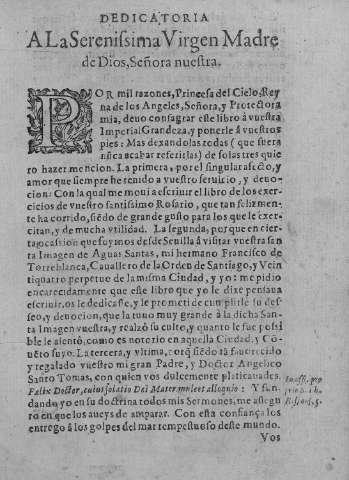 DEDICATORIA
A La Serenissima Virgen Madre
de Dios, Señora nuestra.
POR mil razones, Princesa del Cielo, Rey
na de los Angeles, Señora, y Protectora
mia, deuo consagrar este libro à vuestra
Imperial Grandeza, y ponerle à vuestros
pies: Mas dexandolas todas (que fuera
nũca acabar referirlas) de solas tres quie
ro hazer mencion. La primera, por el singular afecto, y
amor que siempre he tenido a vuestro seruicio, y deuo-
cion: Con la qual me moui a escriuir el libro de los exer-
cicios de vuestro santissimo Rosario, que tan felizmen-
te ha corrido, siẽdo de grande gusto para los que le exer-
citan, y de mucha vtilidad. La segunda, porque en cier-
ta ocassion que fuymos desde Seuilla à visitar vuestra san
ta Imagen de Aguas Santas, mi hermano Francisco de
Torreblanca, Cauallero de la Orden de Santiago, y Vein
tiquatro perpetuo de la misma Ciudad, y yo: me pidio
encarecidamente que este libro que yo le dixe pensaua
escriuir, os le dedicasse, y le prometi de cumplirle su des-
seo, y deuocion, que la tuuo muy grande à la dicha San-
ta Imagen vuestra, y realzò su culto, y quanto le fue possi
ble le asientò, como es notorio en aquella Ciudad, y Cõ-
uẽto suyo. La tercera, y vltima, porq̃ siẽdo tã fauorecido
y regalado vuestro mi gran Padre, y Doctor Angelico
Santo Tomas, con quien vos dulcemente platicauades.
Felix Doctor, cuius solatio Dei Mater mulcet alloquio: Y fun
dando yo en su doctrina todos mis Sermones, me assegu
ro en que los aueys de amparar. Con esta confiança los
entrego à los golpes del mar tempestuoso deste mundo.
Vos